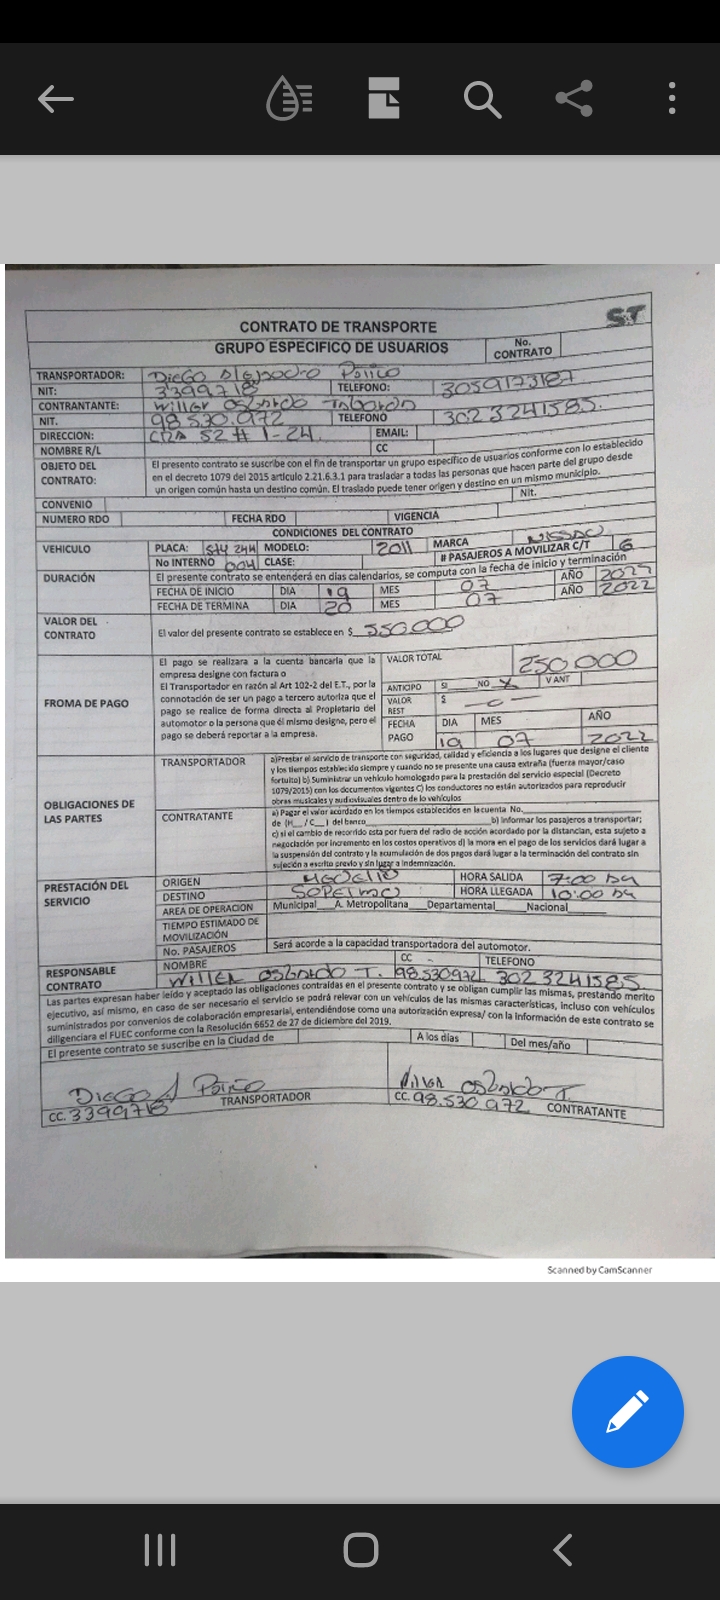 CONTRATO DE TRANSPORTE
ST
GRUPO ESPECIFICO DE USUARIOS
No. CONTRATO
TRANSPORTADOR: Diego Alejandro Patiño
NIT: 3399718 TELEFONO: 3059173187
CONTRANTANTE: Willer Osbardo Taborda
NIT. 98.530.972 TELEFONO 302 3241585.
DIRECCION: CRA 52 # 1-24. EMAIL:
NOMBRE R/L CC
OBJETO DEL CONTRATO:
El presente contrato se suscribe con el fin de transportar un grupo específico de usuarios conforme con lo establecido
en el decreto 1079 del 2015 articulo 2.21.6.3.1 para trasladar a todas las personas que hacen parte del grupo desde
un origen común hasta un destino común. El traslado puede tener origen y destino en un mismo municipio.
CONVENIO Nit.
NUMERO RDO FECHA RDO VIGENCIA
CONDICIONES DEL CONTRATO
VEHICULO PLACA: 244 MODELO: 2011 MARCA NISSAN
No INTERNO 004 CLASE: # PASAJEROS A MOVILIZAR C/T 6
DURACIÓN El presente contrato se entenderá en días calendarios, se computa con la fecha de inicio y terminación
FECHA DE INICIO DIA 19 MES 07 AÑO 2022
FECHA DE TERMINA DIA 20 MES 07 AÑO 2022
VALOR DEL CONTRATO
El valor del presente contrato se establece en $ 550.000
FROMA DE PAGO
El pago se realizara a la cuenta bancarla que la
empresa designe con factura o
El Transportador en razón al Art 102-2 del E.T., por la
connotación de ser un pago a tercero autoriza que el
pago se realice de forma directa al Propietario del
automotor o la persona que él mismo designe, pero el
pago se deberá reportar a la empresa.
VALOR TOTAL 250.000
ANTICIPO SI NO X V ANT
VALOR REST $
FECHA PAGO DIA 19 MES 07 AÑO 2022
OBLIGACIONES DE LAS PARTES
TRANSPORTADOR
a)Prestar el servicio de transporte con seguridad, calidad y eficiencia a los lugares que designe el cliente
y los tiempos establecido siempre y cuando no se presente una causa extraña (fuerza mayor/caso
fortuito) b) Suministrar un vehículo homologado para la prestación del servicio especial (Decreto
1079/2015) con los documentos vigentes C) los conductores no están autorizados para reproducir
obras musicales y audiovisuales dentro de lo vehículos
CONTRATANTE
a) Pagar el valor acordado en los tiempos establecidos en la cuenta No.
de (H__/C__) del banco b) Informar los pasajeros a transportar;
c) si el cambio de recorrido esta por fuera del radio de acción acordado por la distancian, esta sujeto a
negociación por incremento en los costos operativos d) la mora en el pago de los servicios dará lugar a
la suspensión del contrato y la acumulación de dos pagos dará lugar a la terminación del contrato sin
sujeción a escrito previo y sin lugar a indemnización.
PRESTACIÓN DEL SERVICIO
ORIGEN Medellin HORA SALIDA 7:00
DESTINO Sopetran HORA LLEGADA 10:00
AREA DE OPERACION Municipal___A. Metropolitana___Departamental___Nacional___
TIEMPO ESTIMADO DE MOVILIZACIÓN
No. PASAJEROS Será acorde a la capacidad transportadora del automotor.
RESPONSABLE CONTRATO
NOMBRE CC TELEFONO
Willer Osbardo T. 98.530972 302 3241585
Las partes expresan haber leído y aceptado las obligaciones contraídas en el presente contrato y se obligan cumplir las mismas, prestando merito
ejecutivo, así mismo, en caso de ser necesario el servicio se podrá relevar con un vehículos de las mismas características, incluso con vehículos
suministrados por convenios de colaboración empresarial, entendiéndose como una autorización expresa/ con la información de este contrato se
diligenciara el FUEC conforme con la Resolución 6652 de 27 de diciembre del 2019.
El presente contrato se suscribe en la Ciudad de A los días Del mes/año
Diego A Patiño Willer Osbardo T.
CC. 3399718 TRANSPORTADOR CC. 98.530 972 CONTRATANTE
Scanned by CamScanner